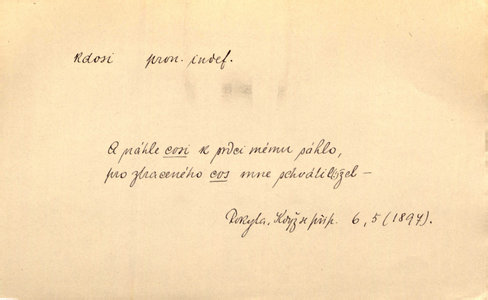 kdosi pron. indef.
A náhle cosi k srdci mému sáhlo,
pro ztraceného cos mne schvátil žel –
Rokyta, Když se přip. 6, 5 (1897).